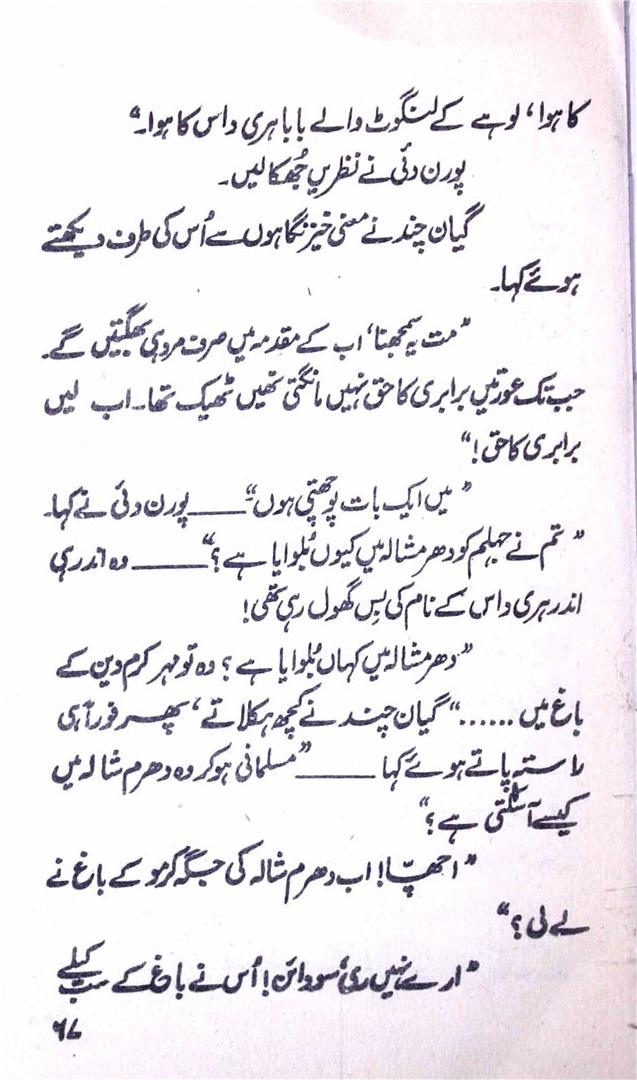 کا ہوا، لوہے کے لنگوٹ والے بابا ہری داس کا ہوا۔“
پورن دئی نے نظریں جُھکا لیں۔
گیان چند نے معنی خیز نگاہوں سے اُس کی طرف دیکھتے
ہوئے کہا۔
”مت یہ سمجھنا، اب کے مقدمہ میں صرف مرد ہی بھگتیں گے۔
جب تک عورتیں برابری کا حق نہیں مانگتی تھیں ٹھیک تھا۔ اب لیں
برابری کا حق!“
”میں ایک بات پوچھتی ہوں“ ــــــ پورن دئی نے کہا۔
”تم نے جہلم کو دھرمشالہ میں کیوں بُلوایا ہے؟“ ــــــ وہ اندر ہی
اندر ہری داس کے نام کی بِس گھول رہی تھی!
”دھرمشالہ میں کہاں بُلوایا ہے؟ وہ تو مہر کرم دین کے
باغ میں ......“ گیان چند نے کچھ ہکلاتے، پھر فوراً ہی
راستہ پاتے ہوئے کہا ــــــ ”مسلمانی ہو کر وہ دھرم شالہ میں
کیسے آ سکتی ہے؟“
”اچھّا! اب دھرم شالہ کی جگہ کرمو کے باغ نے
لے لی؟“
”ارے نہیں ری سودائن! اُس نے باغ کے سب کیلے
۶۷